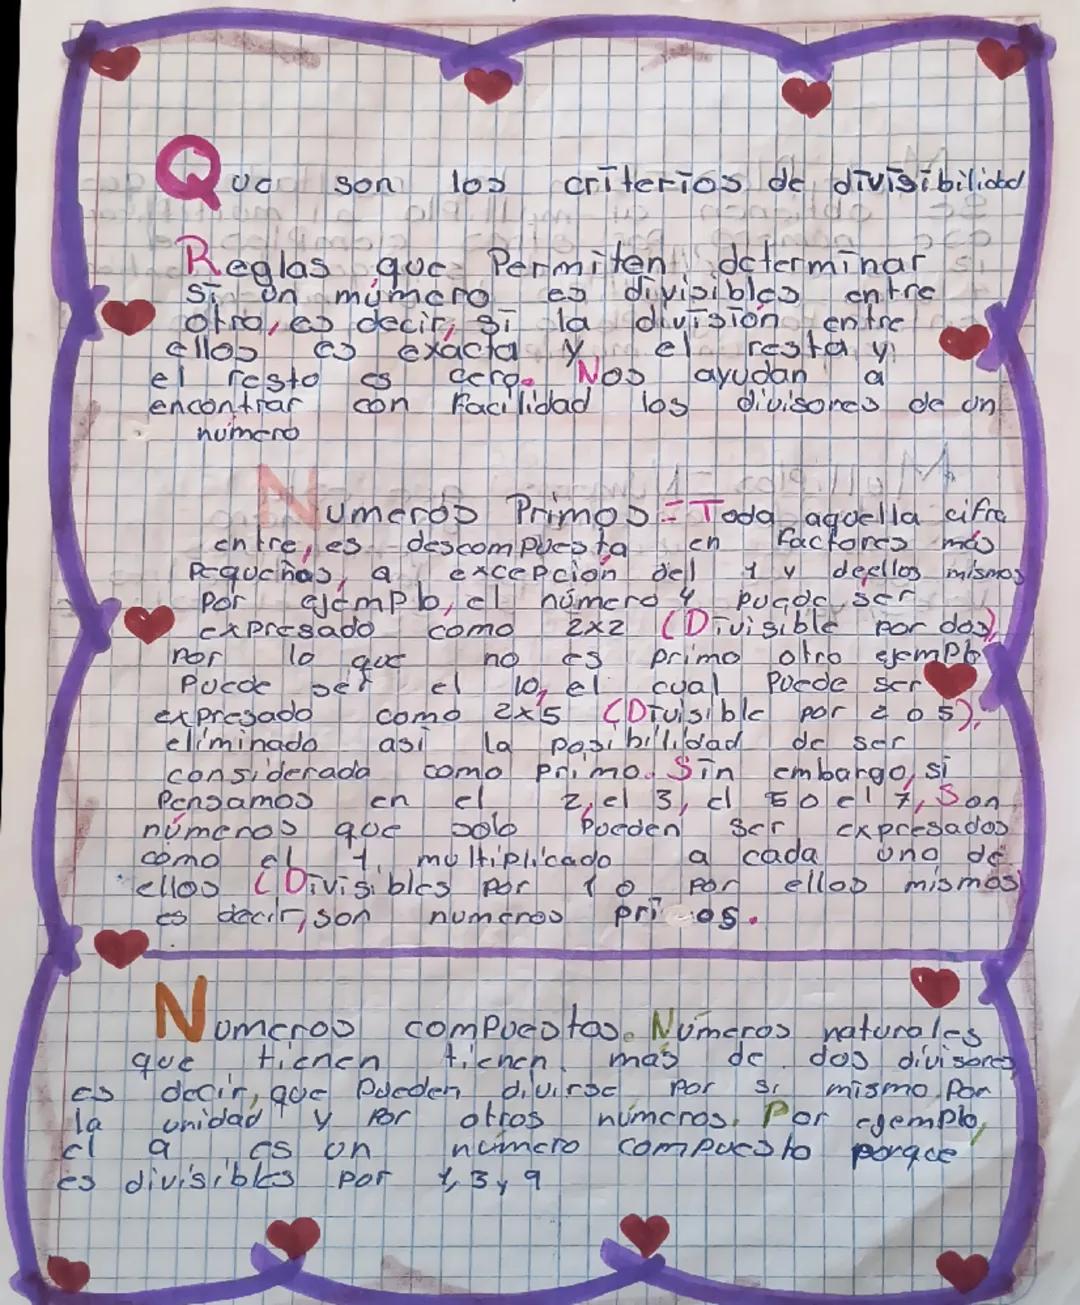 Que son los criterios de divisibilidad
Reglas que Permiten determinar
si un múmero es divisibles entre
otro, es decir, si la división entre
ellos es exacta y el resta y
el resto es cero. Nos ayudan a
encontrar con Facilidad los divisores de un
número
Numeros Primos = Toda aquella cifra
entre, es descompuesta en factores más
Pequeñas, a excepción del 1 y deellos mismos
por ejemplo, el número 4 puede ser
expresado como 2x2 (Divisible por dos),
por lo que no es primo otro ejemplo
Puede ser el 10, el cual Puede ser
expresado como 2x5 (Divisible por 2 o 5),
eliminado asi la posibilidad de ser
considerada como primo. Sin embargo, si
Pensamos en el 2, el 3, el 5 o el 7, Son
números que solo Pueden ser expresados
como el 1, multiplicado a cada uno de
ellos (Divisibles por 1 o por ellos mismos)
es decir, son numeros pri os.
Numeros compuestas. Números naturales
que tienen tienen mas de dos divisores
es decir, que Pueden divirse por si mismo Por
la unidad y por otros números. Por ejemplo,
el 9 es un número compuesto porque
es divisibles por 1, 3 y 9